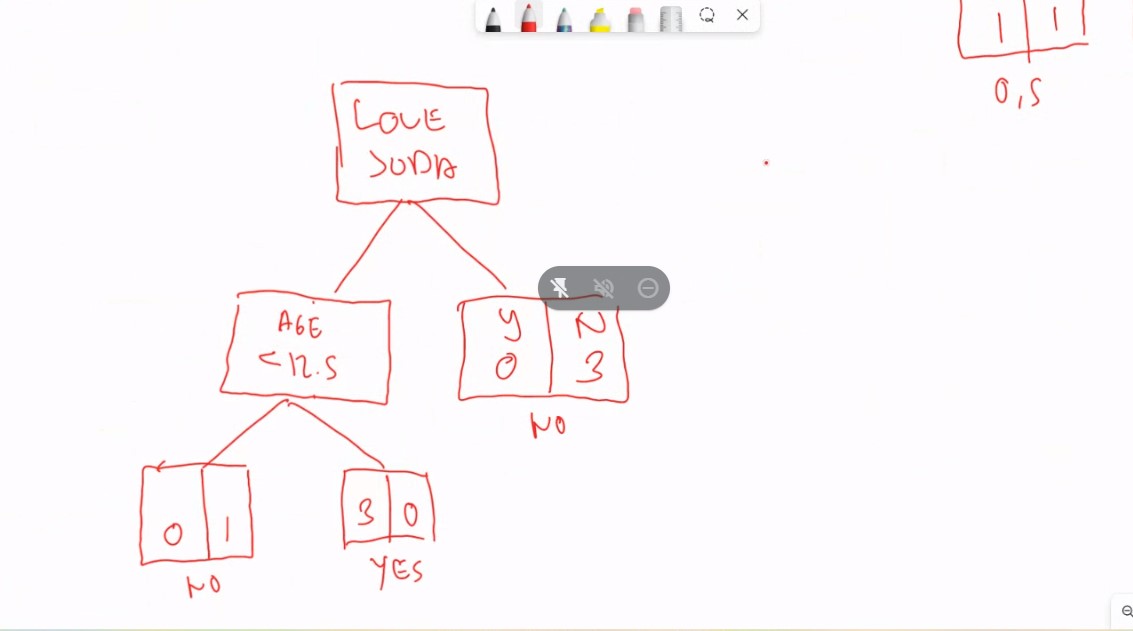 1 1
0,5
LOVE
SODA
AGE
<12.5
Y N
0 3
NO
0 1
3 0
NO
YES